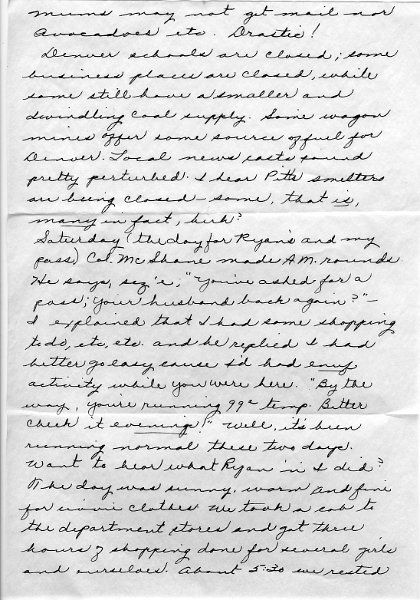 mums may not get mail nor
avocadoes etc. Drastic!
Denver schools are closed; some
business places are closed, while
some still have a smaller and
dwindling coal supply. Some wagon
mines offer some source of fuel for
Denver. Local news casts sound
pretty perturbed. I hear Pitts smelters
are being closed - some, that is,
many in fact, huh?
Saturday (the day for Ryan's and my
pass) Col. McShane made A.M. rounds.
He says, sez 'e, "You've asked for a
pass; your husband back again?" -
I explained that I had some shopping
to do, etc, etc. and he replied I had
better go easy cause I'd had enuf
activity while you were here. "By the
way, you're running 99² temp. Better
check it evenings!" Well, it's been
running normal these two days.
Want to hear what Ryan 'n I did?
The day was sunny, warm and fine
for civvie clothes. We took a cab to
the department stores and got three
hours of shopping done for several girls
and ourselves. About 5:30 we rested